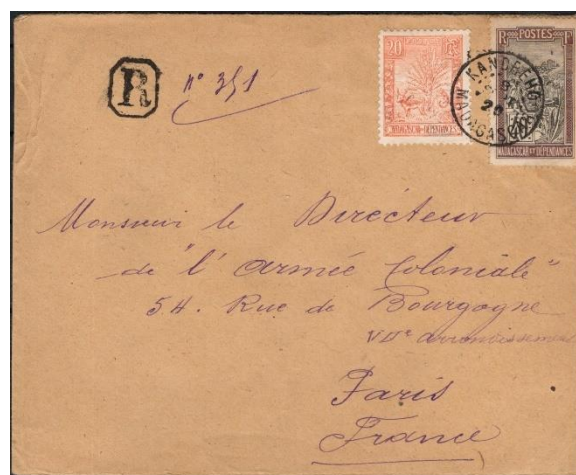 R n° 351
20 c.
MADAGASCAR ET DEPENDANCES
POSTES
R F
MADAGASCAR ET DEPENDANCES
MADAGASCAR
Monsieur le Directeur
de "l'Armée Coloniale"
54. Rue de Bourgogne
VIIe arrondissement
Paris
France